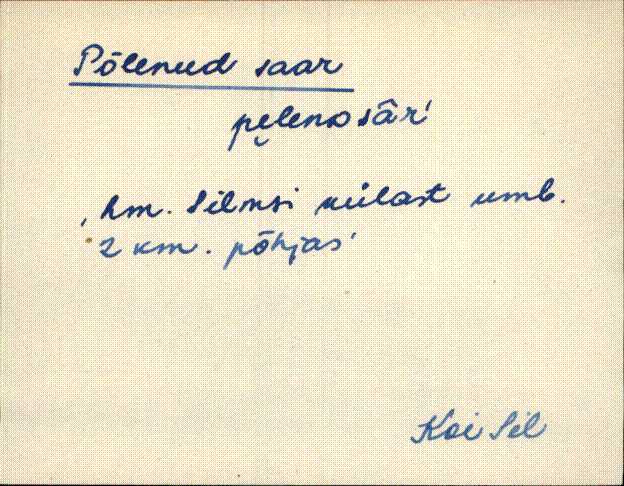 Põlenud saar
pe̮leno sâŕ
, hm. Silmsi külast umb.
2 km. põhjas
Koi Sil